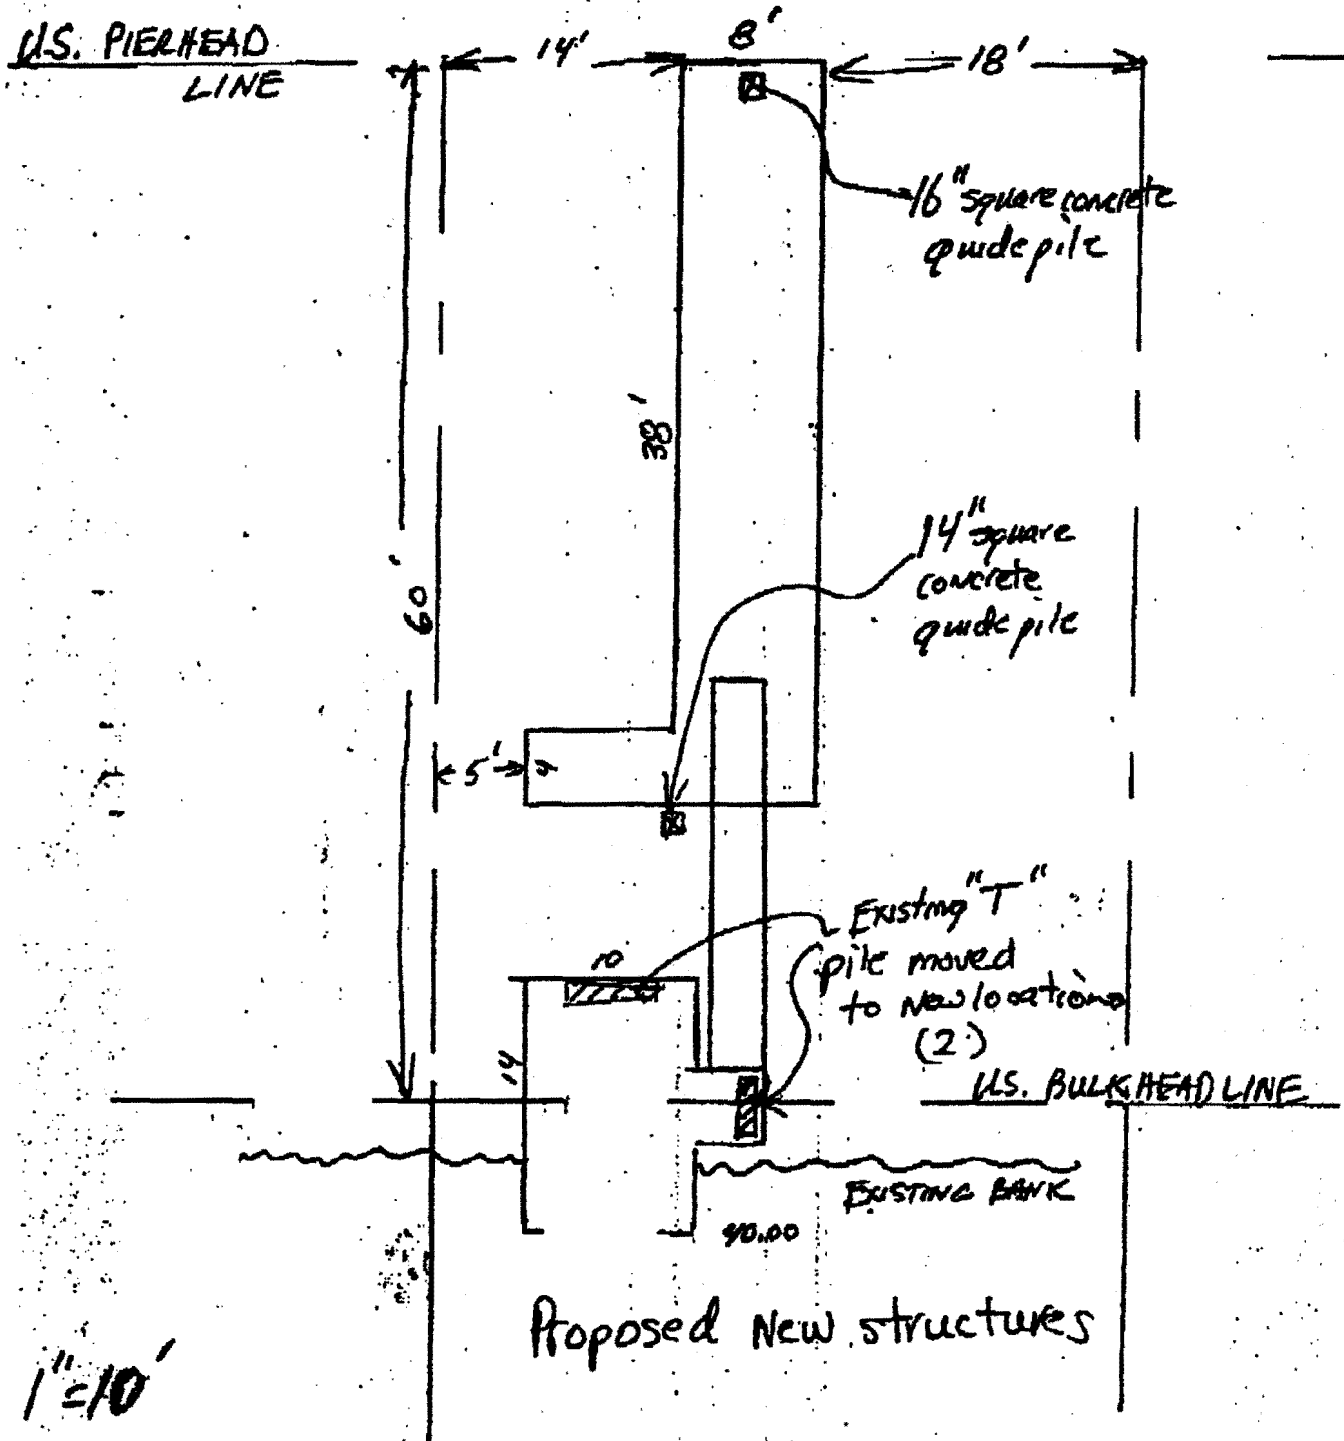 U.S. PIERHEAD
LINE
14'
8'
18'
16" square concrete
guide pile
38'
14" square
concrete
guide pile
60'
5'
4
Existing "T"
pile moved
to New locations
(2)
10
14
U.S. BULKHEAD LINE
EXISTING BANK
40.00
Proposed New structures
1"=10'